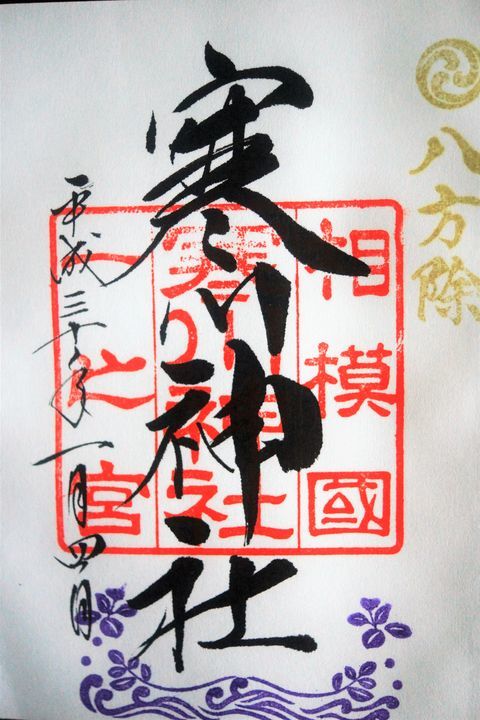 八方除
寒川神社
相模國
寒川神社
一之宮
平成三十年一月四日